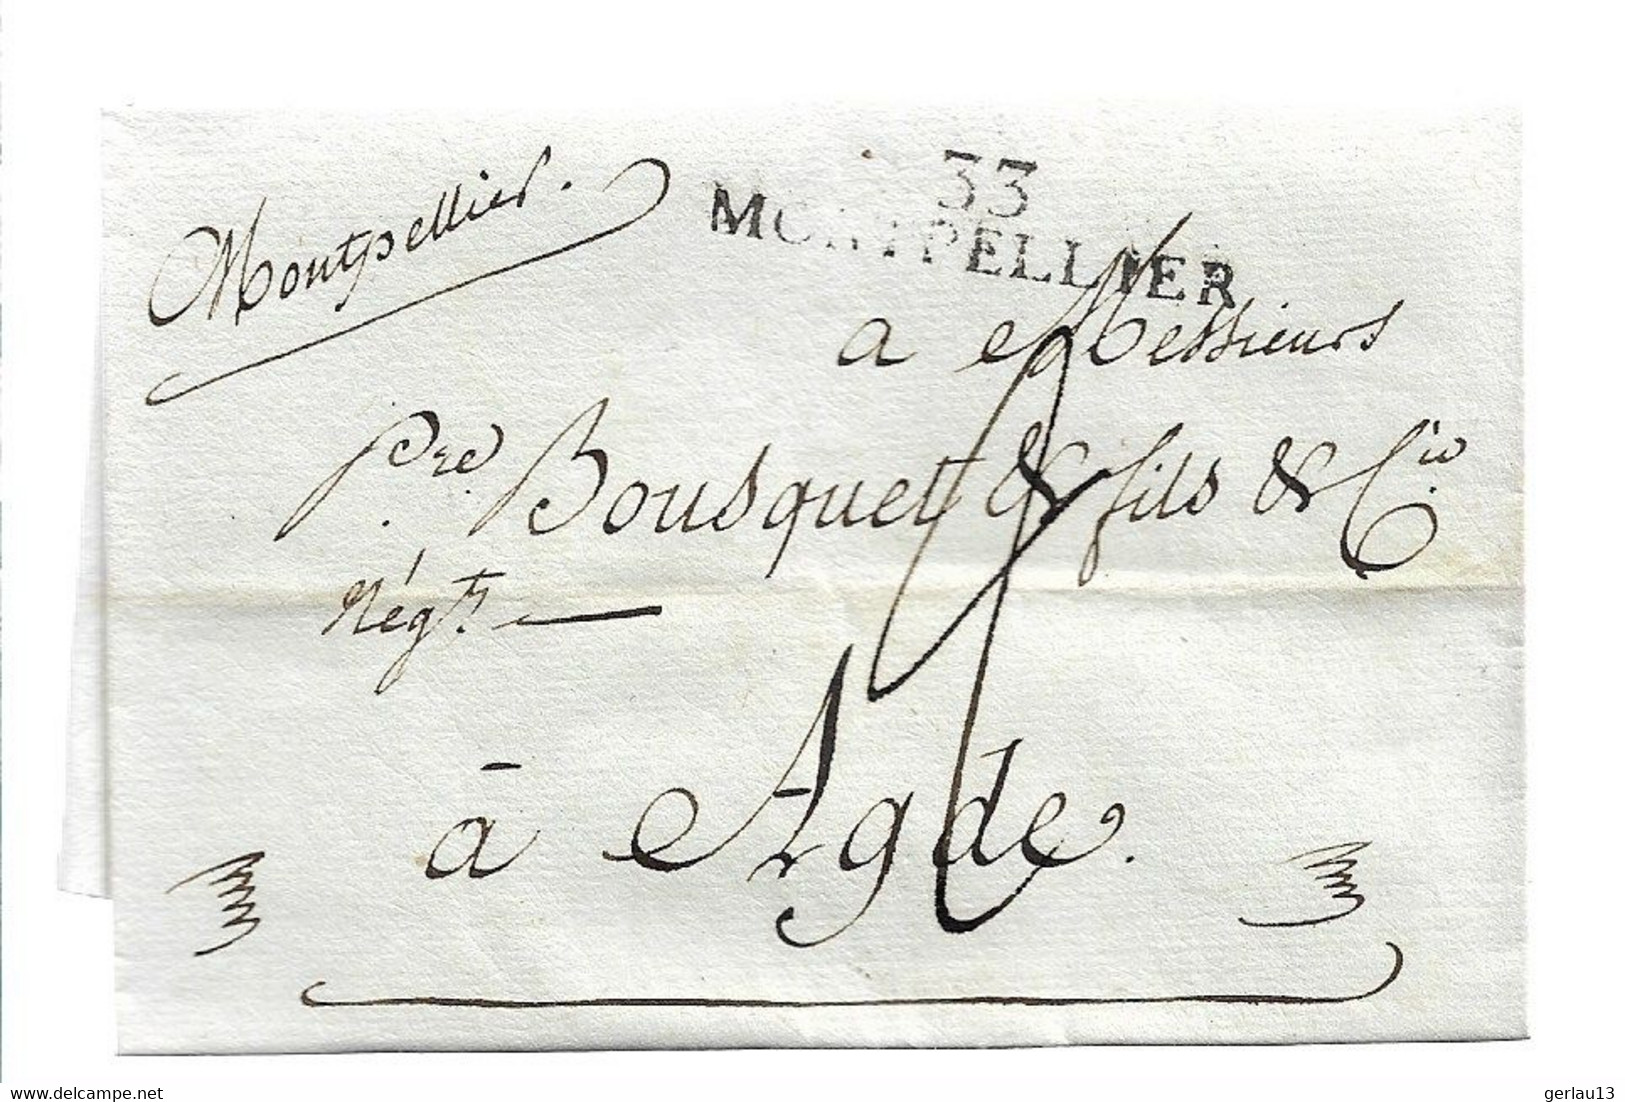 Montpellier.
33
MONTPELLIER
a Messieurs
Pre. Bousquet & fils & Cie.
Négts.
à Agde.
www.delcampe.net
gerlau13